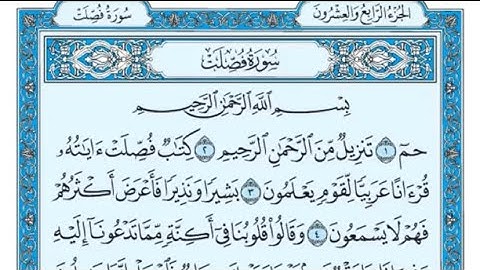 الجزء الرابع والعشرون
سورة فصلت
سُورَةُ فُصِّلَتْ
بِسْمِ ٱللَّهِ ٱلرَّحْمَٰنِ ٱلرَّحِيمِ
حمٓ ۝١ تَنزِيلٌ مِّنَ ٱلرَّحْمَٰنِ ٱلرَّحِيمِ ۝٢ كِتَٰبٌ فُصِّلَتْ ءَايَٰتُهُۥ
قُرْءَانًا عَرَبِيًّا لِّقَوْمٍ يَعْلَمُونَ ۝٣ بَشِيرًا وَنَذِيرًا فَأَعْرَضَ أَكْثَرُهُمْ
فَهُمْ لَا يَسْمَعُونَ ۝٤ وَقَالُوا۟ قُلُوبُنَا فِىٓ أَكِنَّةٍ مِّمَّا تَدْعُونَآ إِلَيْهِ